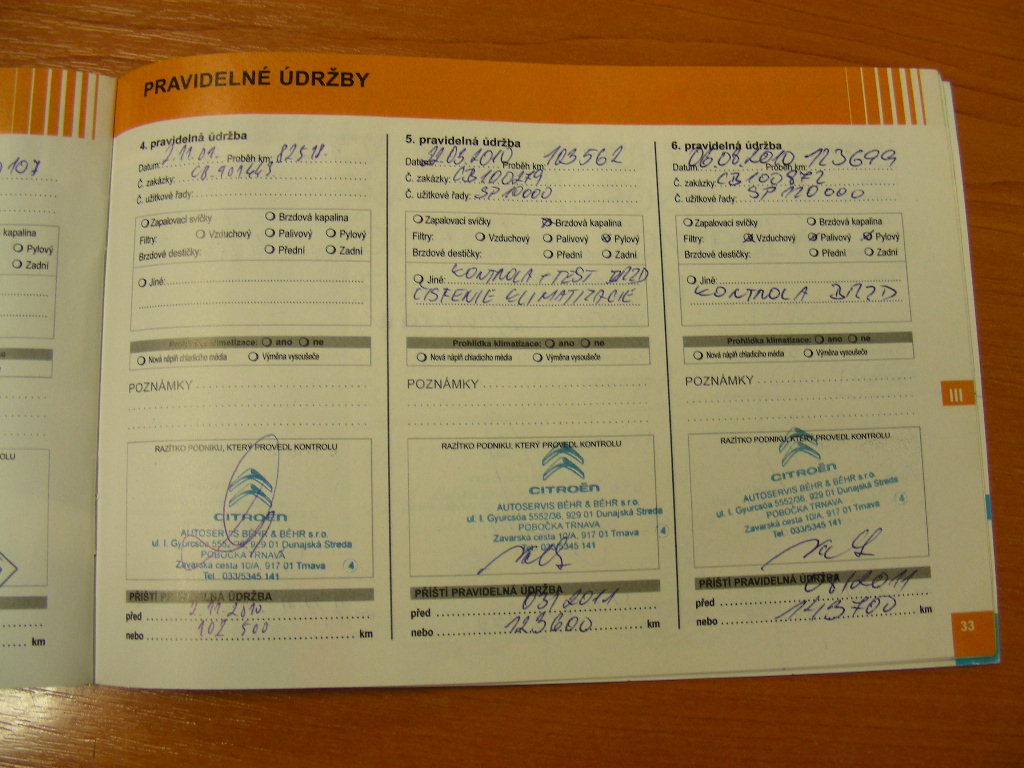 PRAVIDELNÉ ÚDRŽBY
107
kapalina
Pylový
Zadní
km
4. pravidelná údržba
Datum: 2.11.09. Proběh km: 82518.
Č. zakázky:
Č. užitkové řady:
Zapalovací svíčky Brzdová kapalina
Filtry: Vzduchový Palivový Pylový
Brzdové destičky: Přední Zadní
Jiné:
Prohlídka klimatizace: ano ne
Nová náplň chladicího média Výměna vysoušeče
POZNÁMKY
RAZÍTKO PODNIKU, KTERÝ PROVEDL KONTROLU
CITROËN
AUTOSERVIS BÉHR & BÉHR s.r.o.
ul. I. Gyurcsóa 5552/36, 929 01 Dunajská Streda
POBOČKA TRNAVA
Zavarská cesta 10/A, 917 01 Trnava
Tel.: 033/5345 141 4
PŘÍŠTÍ PRAVIDELNÁ ÚDRŽBA
před 2.11.2010.
nebo 102 500 km
5. pravidelná údržba
Datum: .03.2010 Proběh km: 103562
Č. zakázky: CB100279
Č. užitkové řady: SP10000
Zapalovací svíčky Brzdová kapalina
Filtry: Vzduchový Palivový Pylový
Brzdové destičky: Přední Zadní
Jiné: KONTROLA + TEST BRZD
ČISTENIE KLIMATIZACIE
Prohlídka klimatizace: ano ne
Nová náplň chladicího média Výměna vysoušeče
POZNÁMKY
RAZÍTKO PODNIKU, KTERÝ PROVEDL KONTROLU
CITROËN
AUTOSERVIS BÉHR & BÉHR s.r.o.
ul. I. Gyurcsóa 5552/36, 929 01 Dunajská Streda
POBOČKA TRNAVA
Zavarská cesta 10/A, 917 01 Trnava
Tel.: 033/5345 141 4
PŘÍŠTÍ PRAVIDELNÁ ÚDRŽBA
před 03/2011
nebo 123.600 km
6. pravidelná údržba
Datum: 06.08.2010 Proběh km: 123699
Č. zakázky: CB100872
Č. užitkové řady: SP110000
Zapalovací svíčky Brzdová kapalina
Filtry: Vzduchový Palivový Pylový
Brzdové destičky: Přední Zadní
Jiné:
KONTROLA BRZD
Prohlídka klimatizace: ano ne
Nová náplň chladicího média Výměna vysoušeče
POZNÁMKY
RAZÍTKO PODNIKU, KTERÝ PROVEDL KONTROLU
CITROËN
AUTOSERVIS BÉHR & BÉHR s.r.o.
ul. I. Gyurcsóa 5552/36, 929 01 Dunajská Streda
POBOČKA TRNAVA
Zavarská cesta 10/A, 917 01 Trnava
Tel.: 033/5345 141 4
PŘÍŠTÍ PRAVIDELNÁ ÚDRŽBA
před 08/2011
nebo 143.700 km
III
33